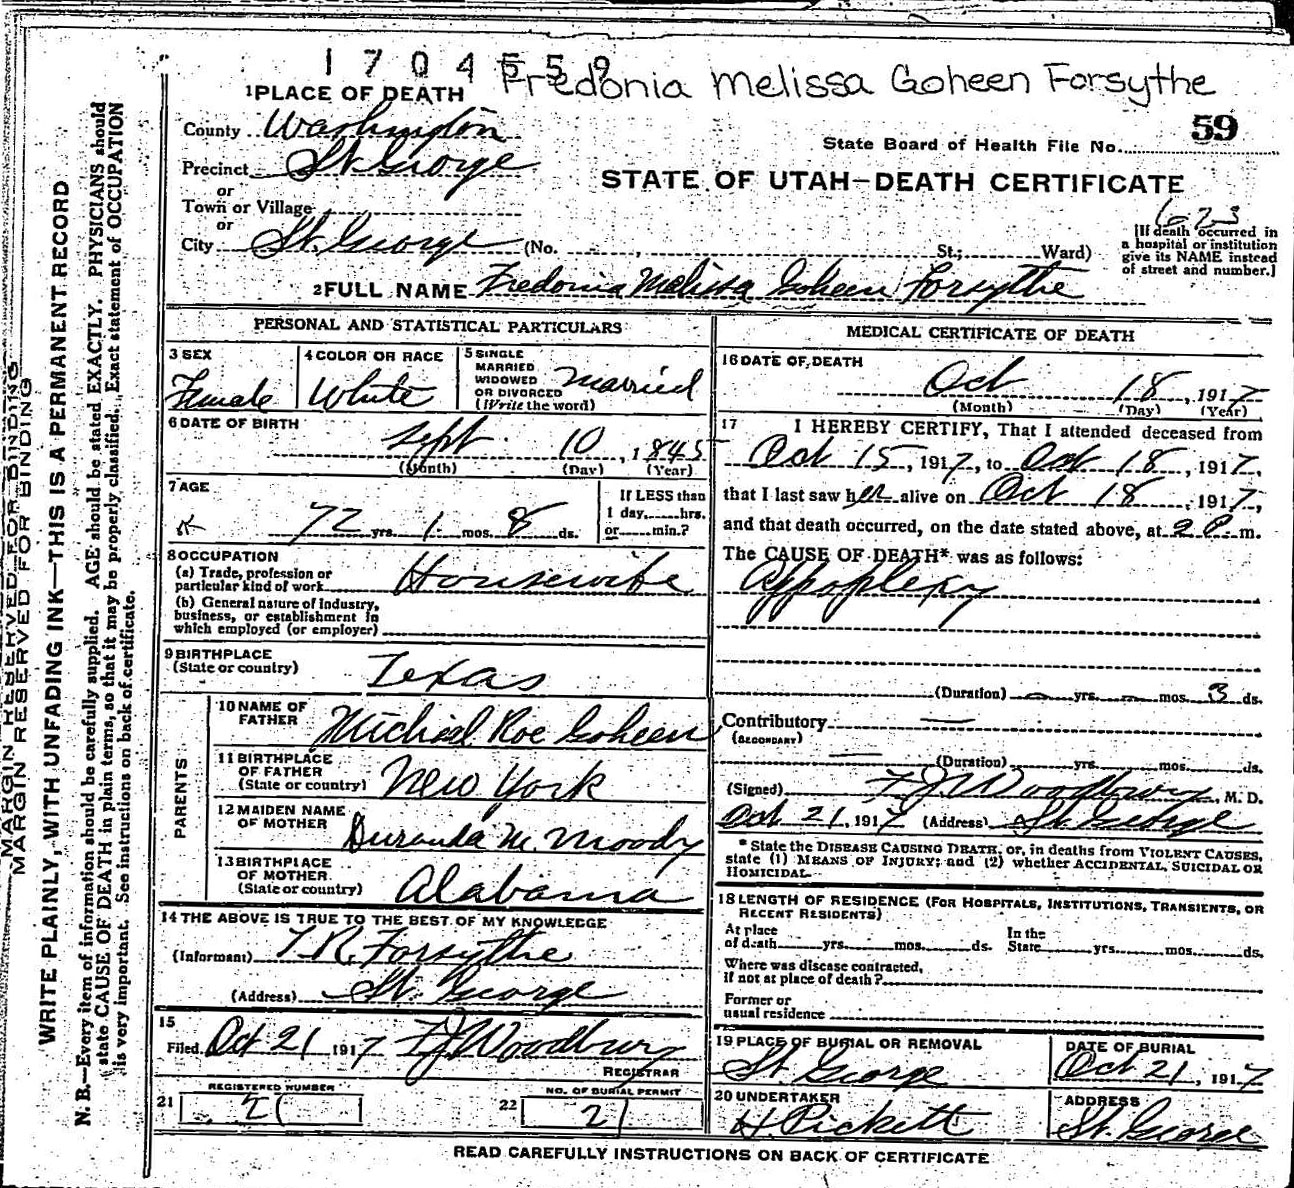 1704559
Fredonia Melissa Goheen Forsythe
1 PLACE OF DEATH
County Washington
59
State Board of Health File No.
Precinct St George
STATE OF UTAH—DEATH CERTIFICATE
or
Town or Village
or
623
City St. George (No. , St.; Ward)
[If death occurred in
a hospital or institution
give its NAME instead
of street and number.]
2 FULL NAME Fredonia Melissa Goheen Forsythe
PERSONAL AND STATISTICAL PARTICULARS
3 SEX
Female
4 COLOR OR RACE
White
5 SINGLE
MARRIED
WIDOWED
OR DIVORCED
(Write the word)
Married
6 DATE OF BIRTH
Sept 10, 1845
(Month) (Day) (Year)
7 AGE
72 yrs. 1 mos. 8 ds.
If LESS than
1 day, hrs.
or min.?
8 OCCUPATION
(a) Trade, profession or
particular kind of work Housewife
(b) General nature of industry,
business, or establishment in
which employed (or employer)
9 BIRTHPLACE
(State or country) Texas
PARENTS
10 NAME OF
FATHER Michael Roe Goheen
11 BIRTHPLACE
OF FATHER
(State or country) New York
12 MAIDEN NAME
OF MOTHER M. Moody
13 BIRTHPLACE
OF MOTHER
(State or country) Alabama
14 THE ABOVE IS TRUE TO THE BEST OF MY KNOWLEDGE
(Informant) T. R. Forsythe
(Address) St. George
15
Filed Oct 21 1917 F J Woodbury
REGISTRAR
REGISTERED NUMBER
21 21
NO. OF BURIAL PERMIT
22 21
MEDICAL CERTIFICATE OF DEATH
16 DATE OF DEATH
Oct 18, 1917
(Month) (Day) (Year)
17 I HEREBY CERTIFY, That I attended deceased from
Oct 15, 1917, to Oct 18, 1917,
that I last saw her alive on Oct 18, 1917,
and that death occurred, on the date stated above, at 2 P. m.
The CAUSE OF DEATH* was as follows:
Appoplexy
(Duration) — yrs. — mos. 3 ds.
Contributory —
(SECONDARY)
— (Duration) yrs. mos. ds.
(Signed) F J Woodbury, M. D.
Oct 21, 1917 (Address) St. George
* State the DISEASE CAUSING DEATH, or, in deaths from VIOLENT CAUSES,
state (1) MEANS OF INJURY; and (2) whether ACCIDENTAL, SUICIDAL OR
HOMICIDAL.
18 LENGTH OF RESIDENCE (FOR HOSPITALS, INSTITUTIONS, TRANSIENTS, OR
RECENT RESIDENTS)
At place
of death yrs. mos. ds.
In the
State yrs. mos. ds.
Where was disease contracted,
if not at place of death?
Former or
usual residence
19 PLACE OF BURIAL OR REMOVAL
St. George
DATE OF BURIAL
Oct 21, 1917
20 UNDERTAKER
H Pickett
ADDRESS
St. George
READ CAREFULLY INSTRUCTIONS ON BACK OF CERTIFICATE
MARGIN RESERVED FOR BINDING
MARGIN RESERVED FOR BINDING
WRITE PLAINLY, WITH UNFADING INK—THIS IS A PERMANENT RECORD
N. B.—Every item of information should be carefully supplied. AGE should be stated EXACTLY. PHYSICIANS should
state CAUSE OF DEATH in plain terms, so that it may be properly classified. Exact statement of OCCUPATION
is very important. See instructions on back of certificate.